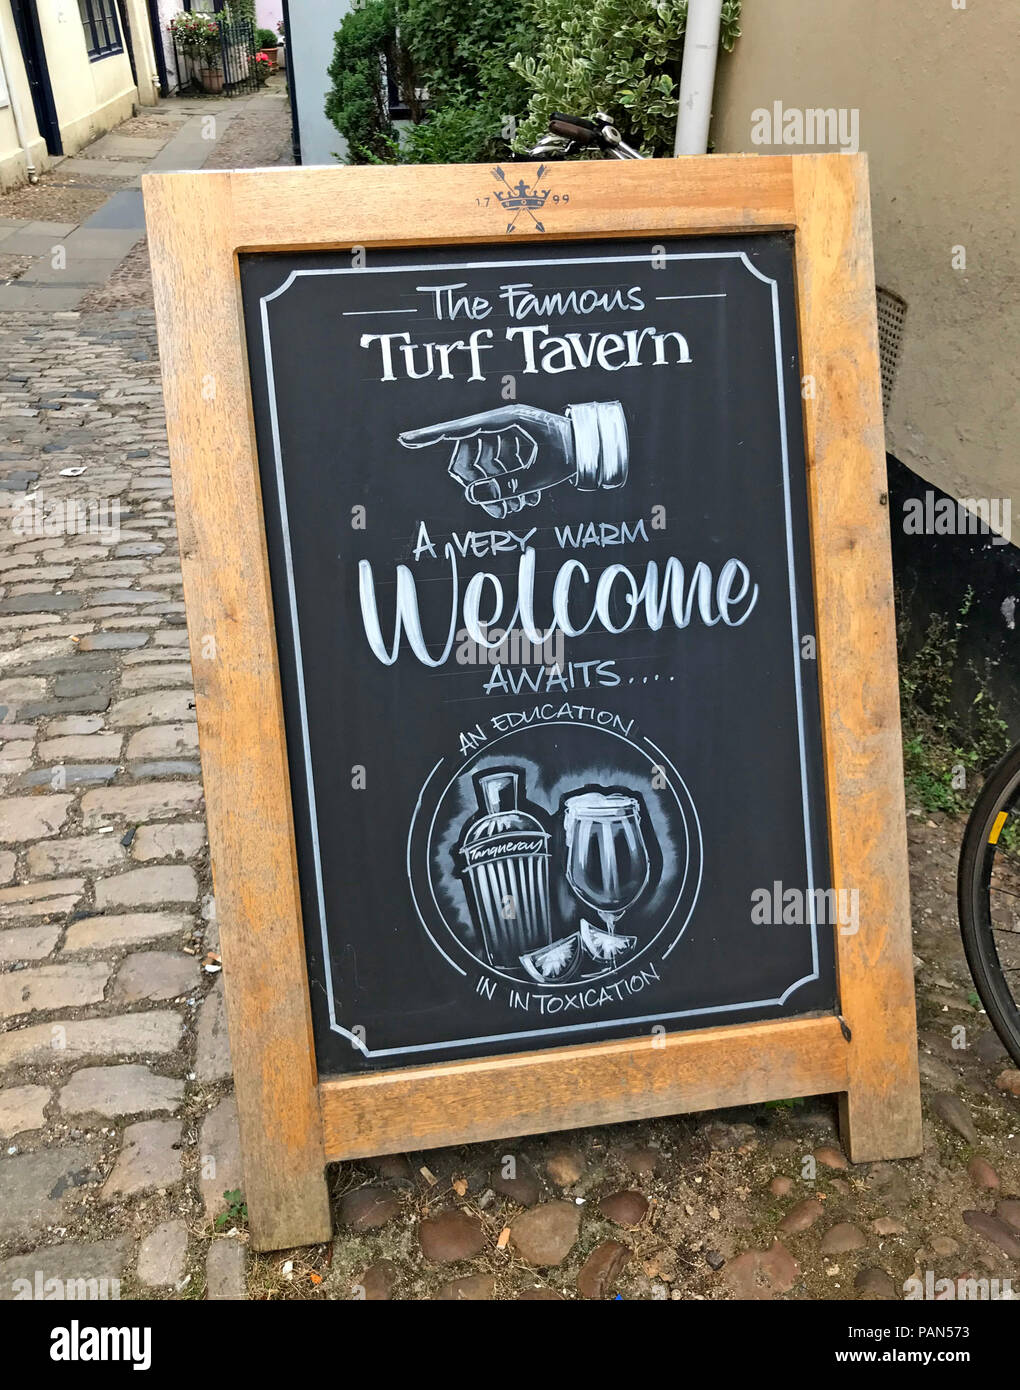 17 99
The Famous
Turf Tavern
A VERY WARM
Welcome
AWAITS....
AN EDUCATION
Tanqueray
IN INTOXICATION
alamy
Image ID: PAN573
www.alamy.com